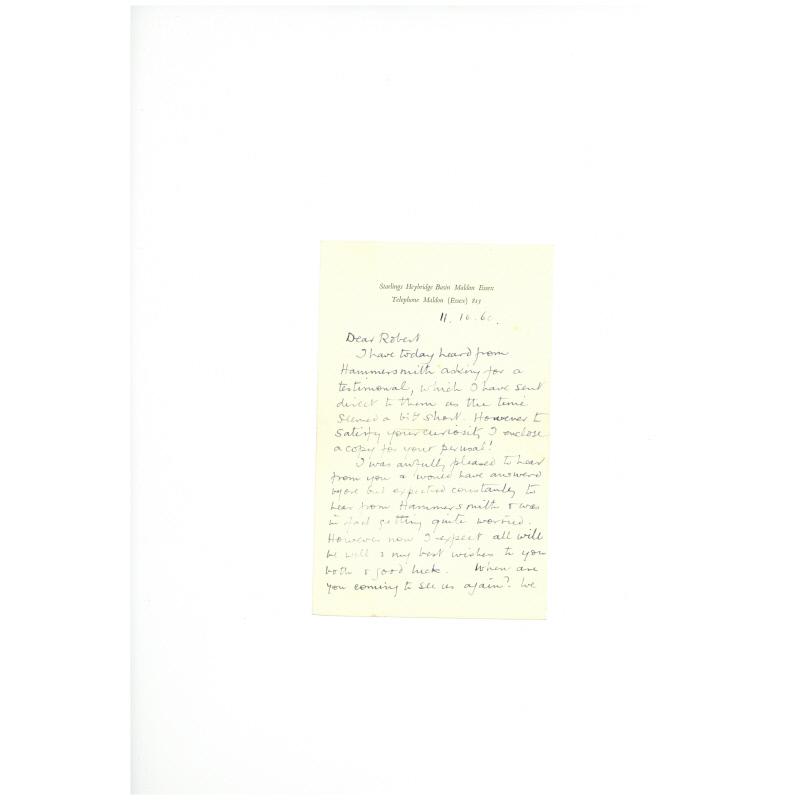 Starlings Heybridge Basin Maldon Essex
Telephone Maldon (Essex) 815
11. 10. 60.
Dear Robert
I have today heard from
Hammersmith asking for a
testimonal, which I have sent
direct to them as the time
seemed a bit short. However to
satisfy your curiosity I enclose
a copy for your perusal!
I was awfully pleased to hear
from you & would have answered
before but expected constantly to
hear from Hammersmith & was
in fact getting quite worried.
However now I expect all will
be well & my best wishes to you
both & good luck. When are
you coming to see us again? We